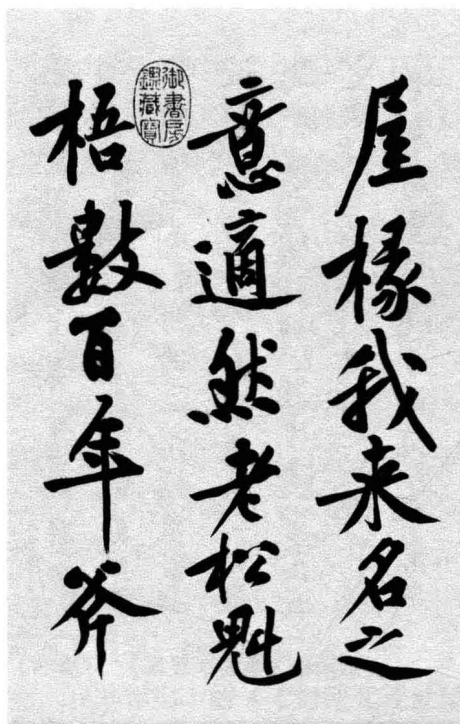 屋椽我来名之
意適然老松魁
梧數百年斧
御書房鑒藏寶